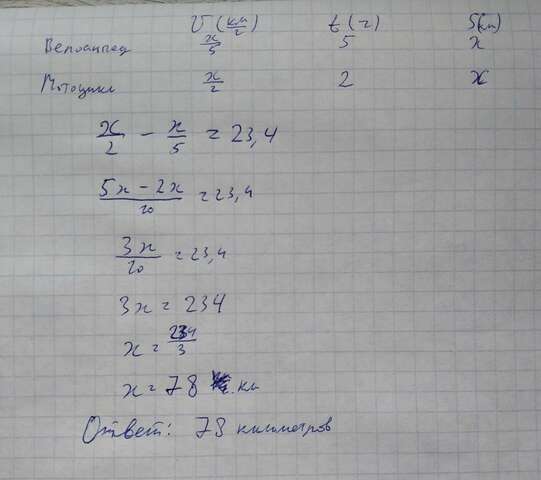 V (км/г) t (г) S(км)
Велосипед x/5 5 x
Мотоцикл x/2 2 x
x/2 - x/5 = 23,4
(5x - 2x)/10 = 23,4
3x/10 = 23,4
3x = 234
x = 234/3
x = 78 км
Ответ: 78 километров